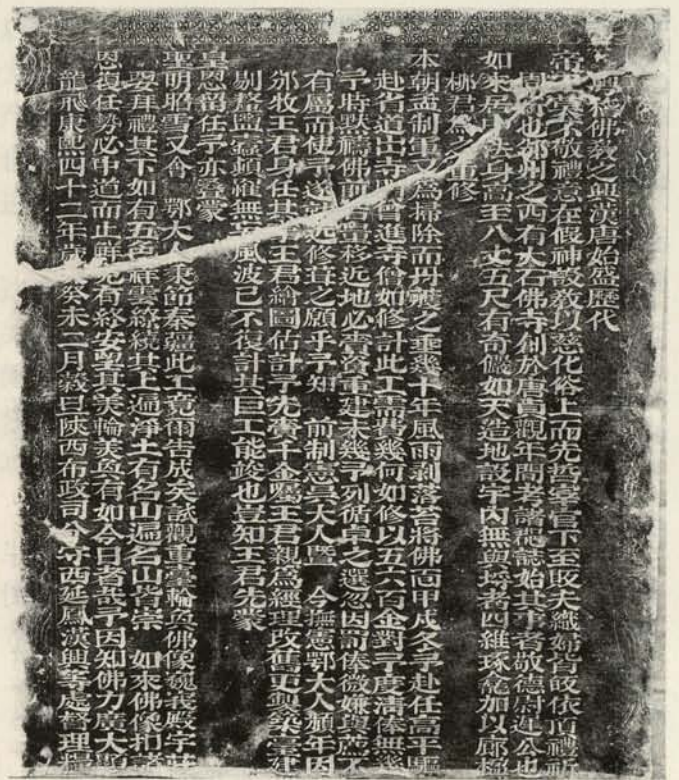 稽佛教之興漢唐始盛歷代
帝不敬禮意在假神設教以慈化俗上而先哲宰官下至販夫織婦皆皈依頂禮祈
也邠州之西有大石佛寺創於唐貞觀年間考諸碑誌始其事者敬德尉遲公也
如來居身高至八丈五尺有奇儼如天造地設宇內無與埒者四維琢龕加以廊
栁君為重修
本朝盂制軍又為掃除而丹雘之垂幾十年風雨剥落苔將佛面甲戌冬予赴任高平驅
赴省道出寺曾進寺僧如修計此工需費幾何如修以五六百金對予度淸俸無幾
予時默禱佛前移近地必膏資重建未幾予列循卓之選忽因罰俸微嫌與薦不
有屬而使予遂近修葺之願乎予知 前制憲吳大人曁 今撫憲鄂大人願年因
邠牧王君身任其王君繪圖估計予先賫千金囑王君親為經理改舊更興築臺建
剔盤頻催無風波已不復計其巨工能竣也豈知王君先蒙
皇恩留任予亦蒙
聖明昭雪又會 鄂大人秉節秦疆此工竟爾告成矣試觀重臺輪奐佛像巍峩殿宇莊
娶拜禮其下如有五色祥雲繚繞其上遍淨土有名山遍名山皆崇 如來佛像扣
恩復任勢必中道而止鮮克有終安望其美輪美奐有如今日者哉予因知佛力廣大
龍飛康熙四十二年歲癸未二月穀旦陝西布政司分守西延鳳漢興等處督理糧